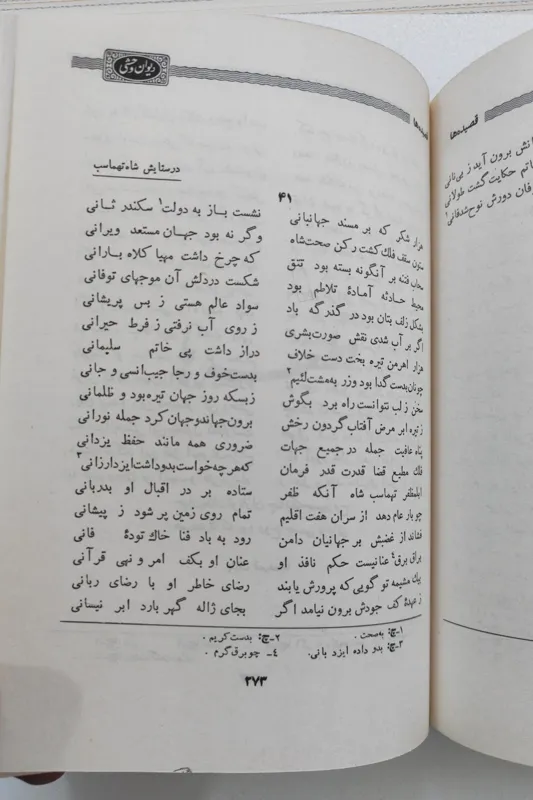 دیوان وحشی
قصیده‌ها
در ستایش شاه تهماسب
۴۱
هزار شکر که بر مسند جهانبانی نشست باز به دولت۱ سکندر ثانی
ستون سقف فلک گشت رکن صحت شاه وگر نه بود جهان مستعد ویرانی
سحاب فتنه بر آنگونه بسته بود تتق که چرخ داشت مهیا کلاه بارانی
محیط حادثه آمادهٔ تلاطم بود شکست در دلش آن موجهای توفانی
بشکل زلف بتان بود در گذرگه باد سواد عالم هستی ز بس پریشانی
اگر بر آب شدی نقش صورت بشری ز روی آب نرفتی ز فرط حیرانی
هزار اهرمن تیره بخت دست خلاف دراز داشت پی خاتم سلیمانی
چونان بدست گدا بود وزر به مشت لئیم۲ بدست خوف و رجا جیب انسی و جانی
سخن ز لب نتوانست راه برد بگوش ز بسکه روز جهان تیره بود و ظلمانی
ز تیره ابر مرض آفتاب گردون رخش برون جهاند و جهان کرد جمله نورانی
پناه عافیت جمله در جمیع جهات ضروری همه مانند حفظ یزدانی
فلک مطیع قضا قدرت قدر فرمان که هر چه خواست بدو داشت ایزد ارزانی۳
ابلمظفر تهماسب شاه آنکه ظفر ستاده بر در اقبال او بدربانی
چو بار عام دهد از سران هفت اقلیم تمام روی زمین پر شود ز پیشانی
فشاند از غضبش بر جهانیان دامن رود به باد فنا خاک تودهٔ فانی
براق برق۴ عنانیست حکم نافذ او عنان او بکف امر و نهی قرآنی
بیک مشیمه تو گویی که پرورش یابند رضای خاطر او با رضای ربانی
ز عهدهٔ کف جودش برون نیامد اگر بجای ژاله گهر بارد ابر نیسانی
۱ـ چ: به صحت . ۲ـ چ: بدست کریم .
۳ـ چ: بدو داده ایزد بانی. ۴ـ چو برق گرم .
۲۷۳
قصیده‌ها
برون آید ز بی‌نانی
حکایت گشت طولانی
دورش نوح شد فانی۱